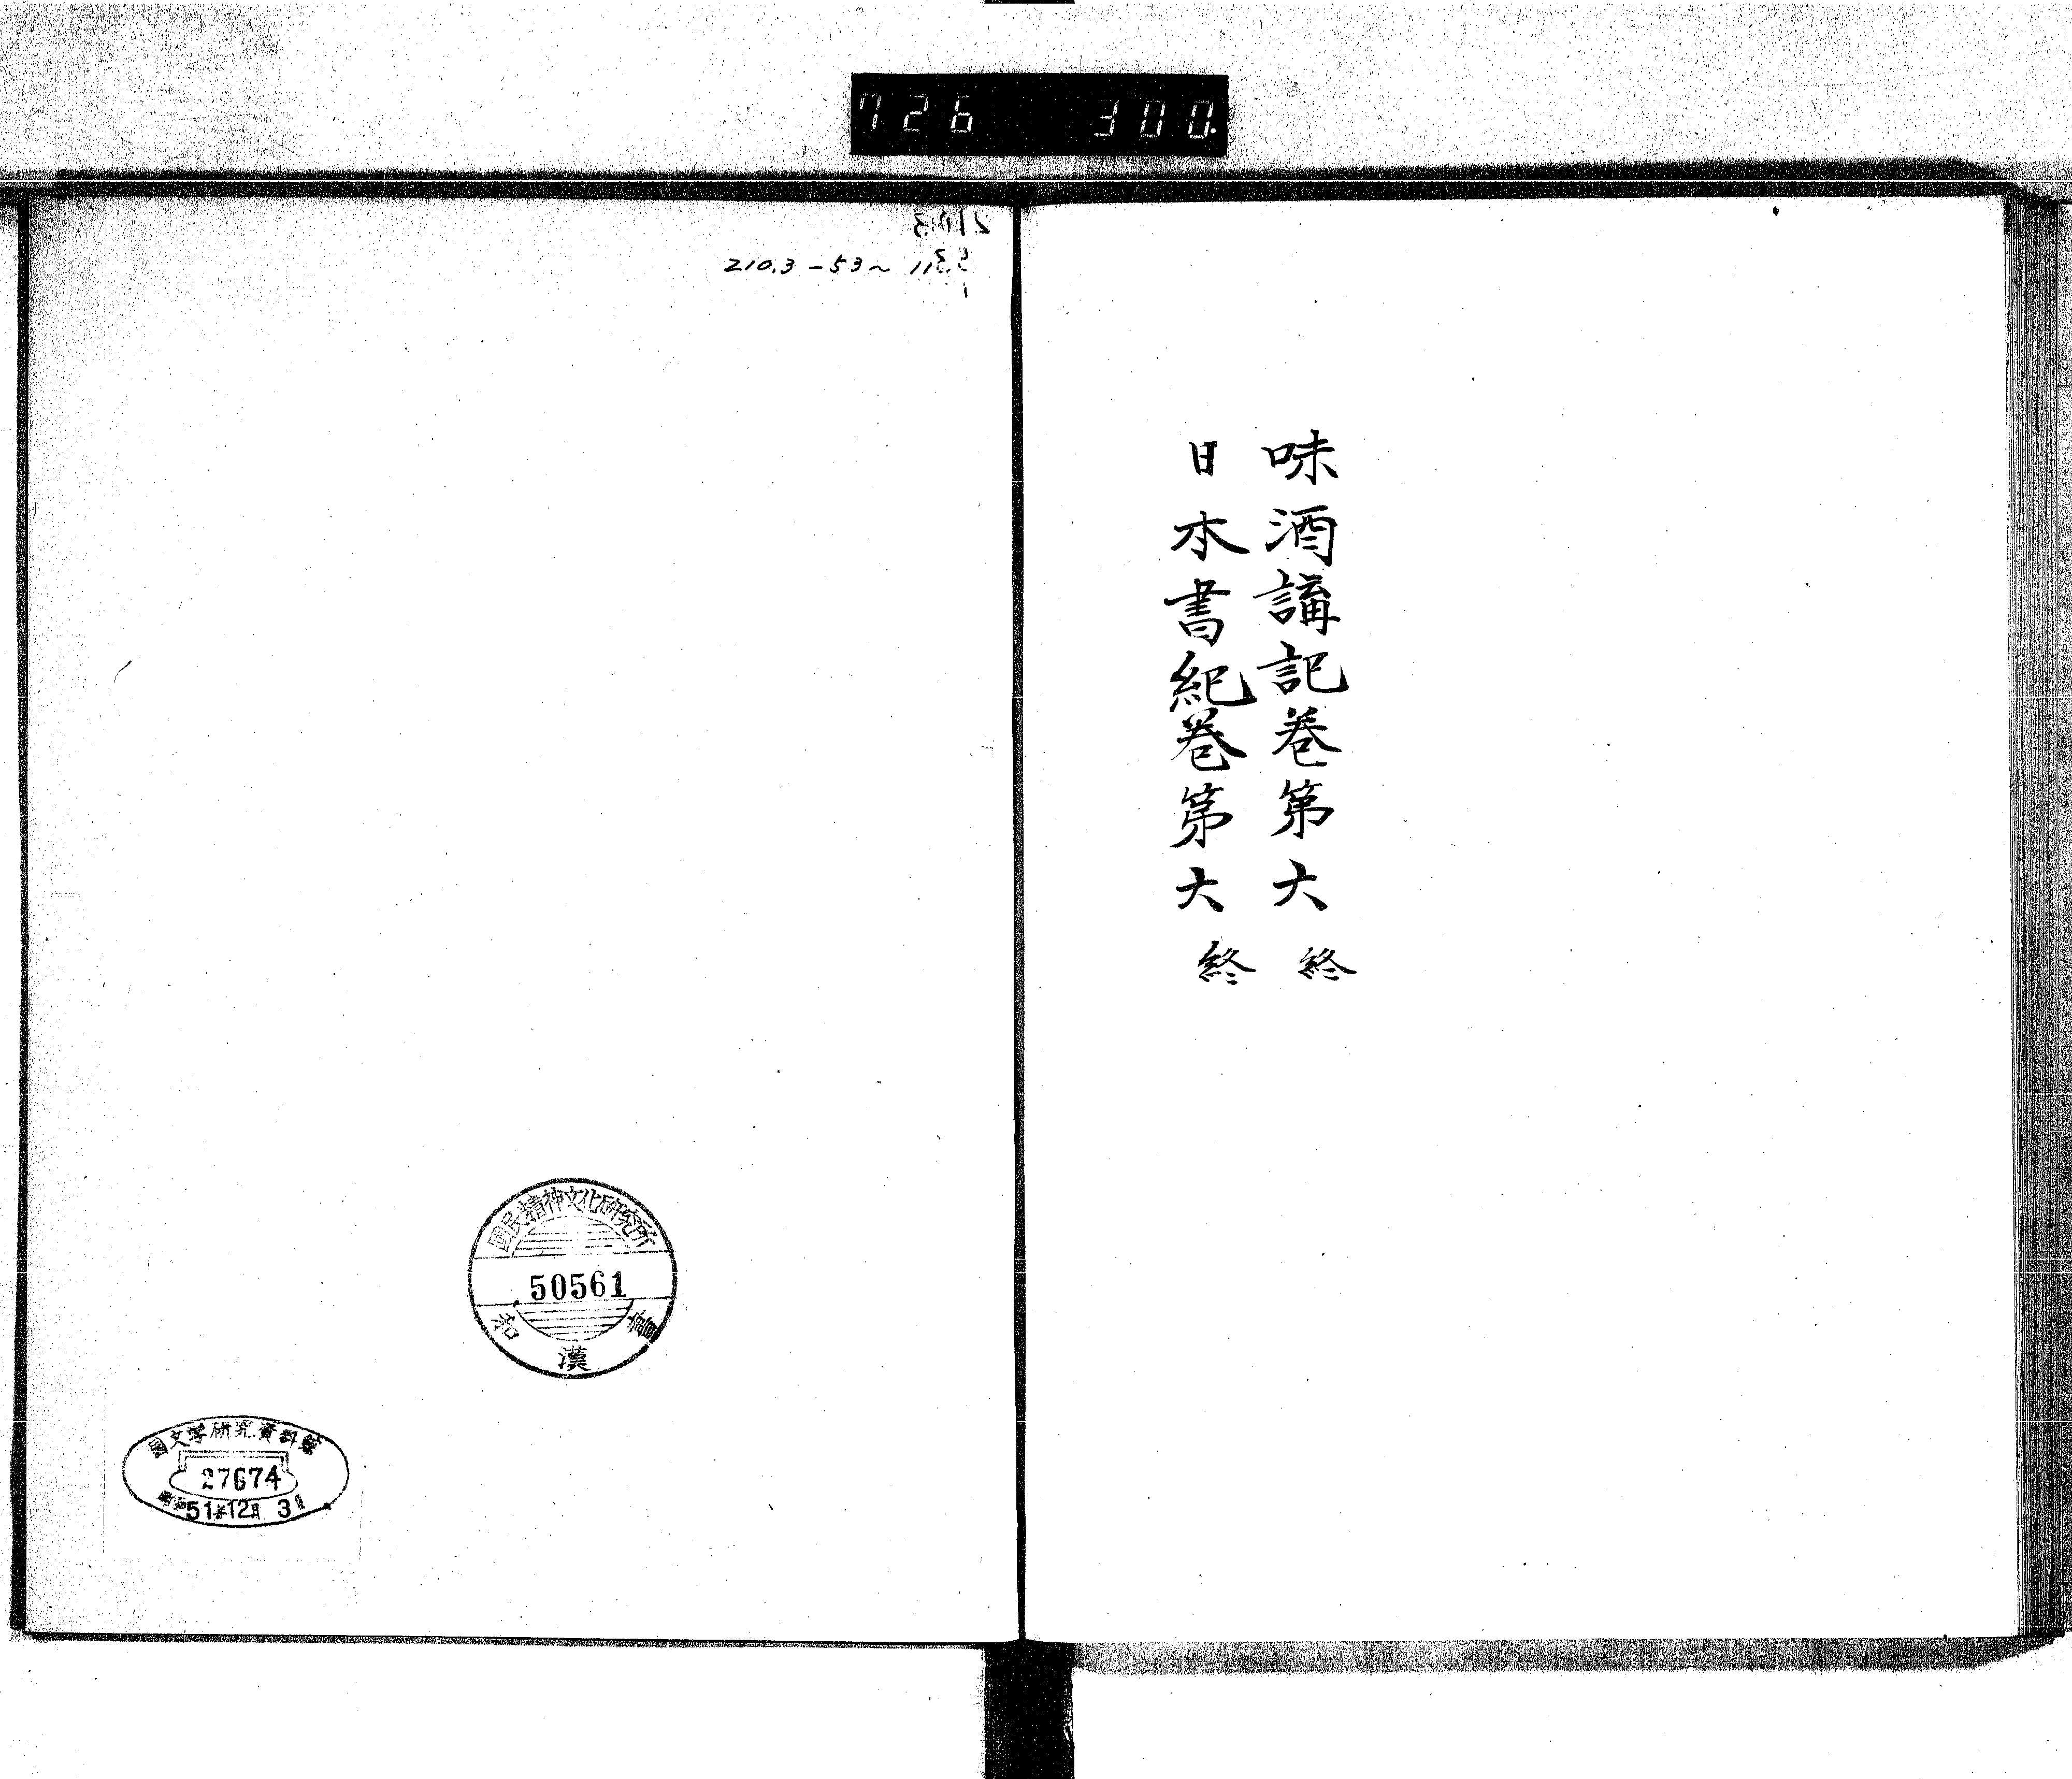 726 300.
味酒講記巻第大 終
日本書紀巻第大 終
210.3
53
1
210.3-53~11
國民精神文化研究所
50561
和漢書
國文学研究資料館
27674
昭和51年12月31